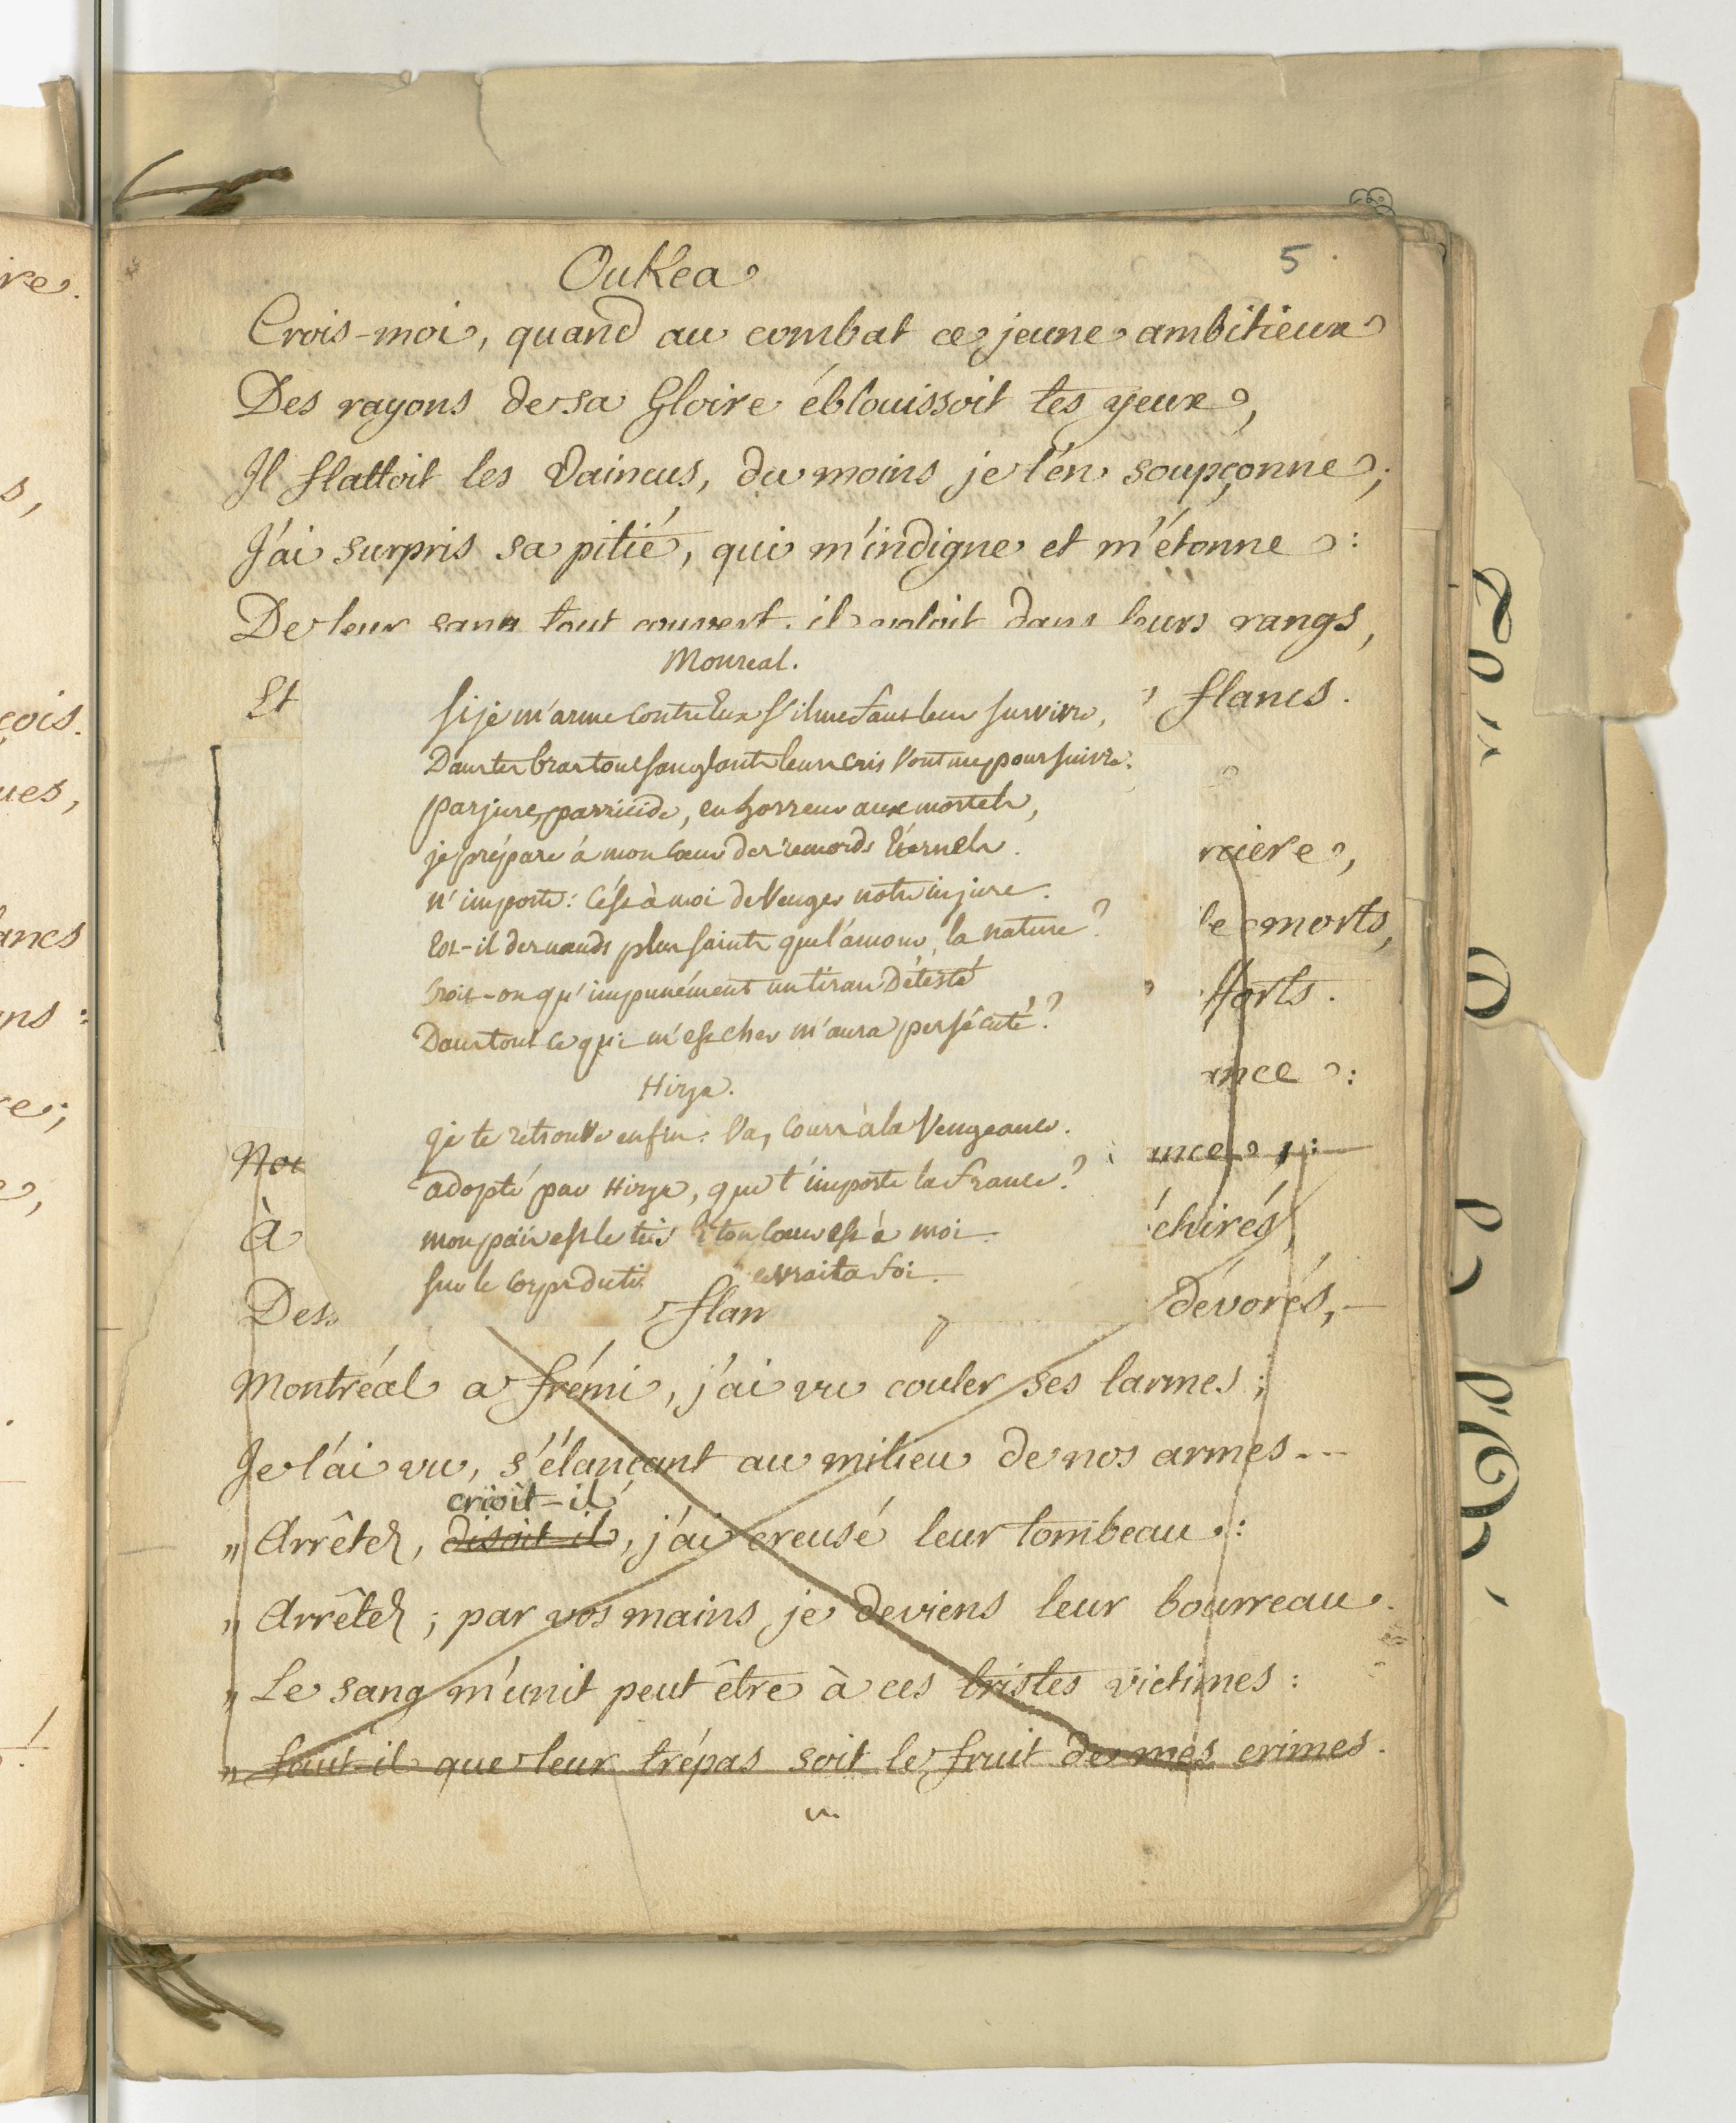 5
Oukea
Crois-moi, quand au combat ce jeune ambitieux
Des rayons de sa Gloire éblouissoit tes yeux,
Il flattoit les Vaincus, du moins je l'en soupçonne;
J'ai surpris sa pitié, qui m'indigne et m'étonne :
De leur sang tout couvert, il voloit dans leurs rangs,
Et
flancs.
Monreal.
Si je m'arme contre Eux s'il me faut leur survivre,
Dans tes bras tout sanglants leurs cris vont me poursuivre.
parjure, parricide, en horreur aux mortels,
je prépare à mon coeur des remords Eternels.
n'importe : C'est à moi de Venger notre injure.
Est-il des nœuds plus saints que l'amour, la nature ?
Croit-on qu'impunément un tiran Détesté
Dans tout ce qui m'est cher m'aura persécuté ?
Hirza.
je te retrouve enfin : Va, Cours à la Vengeance.
adopté par Hirza, que t'importe la france ?
mon païs est le tien et ton coeur est à moi
sur le corps du
ta foi.
rière,
morts,
fforts.
ance :
Noi
ance,
À
échirés,
Des
flan
dévorés,
Montréal a frémi, j'ai vu couler ses larmes;
Je l'ai vu, s'élançant au milieu de nos armes...
crioit-il
„ Arrêtez, disoit-il, j'ai creusé leur tombeau :
„ Arrêtez; par vos mains je deviens leur bourreau.
„ Le sang m'unit peut être à ces tristes victimes :
„ faut-il que leur trépas soit le fruit de mes crimes.